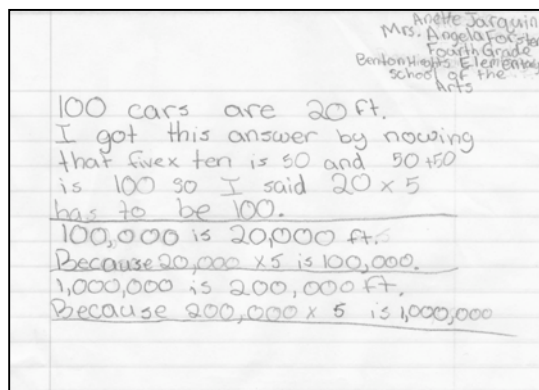 Anette Jarquin
Mrs. Angela Forster
Fourth Grade
Benton Hights Elementary
School of the
Arts
100 cars are 20 ft.
I got this answer by nowing
that fivex ten is 50 and 50+50
is 100 so I said 20 x 5
has to be 100.
100,000 is 20,000 ft.
Because 20,000 x5 is 100,000.
1,000,000 is 200,000 ft.
Because 200,000 x 5 is 1,000,000